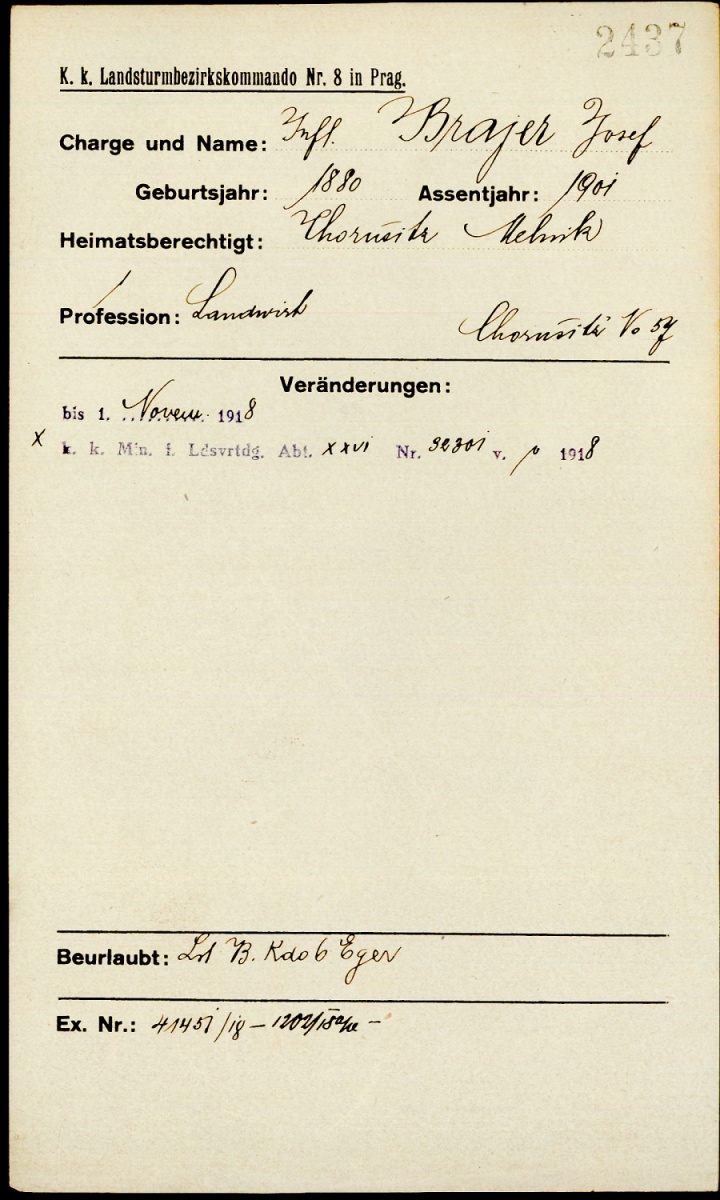 2437
K. k. Landsturmbezirkskommando Nr. 8 in Prag.
Charge und Name: Inft. Brajer Josef
Geburtsjahr: 1880 Assentjahr: 1901
Heimatsberechtigt: Chorusitz Melnik
Profession: Landwirt
Chorusitz No 57
Veränderungen:
bis 1. Novem. 1918
x k. k. Min. f. Ldsvrtdg. Abt. XXVI Nr. 32301 v. 1918
Beurlaubt: Lst B. Kdo 6 Eger
Ex. Nr.: 41451/18 –